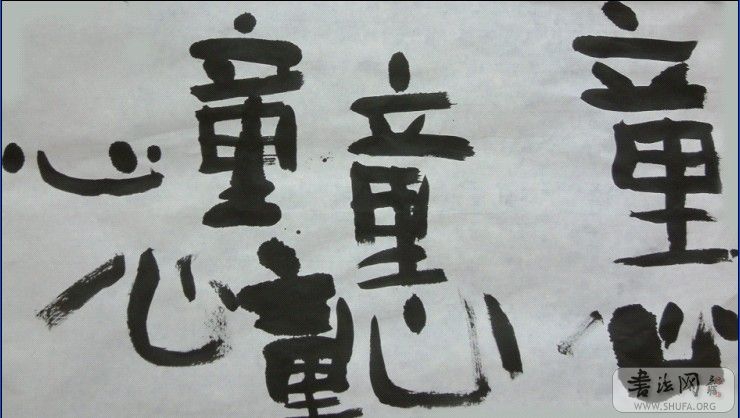 童心
童心
童心
童
心
書法网
WWW.SHUFA.ORG